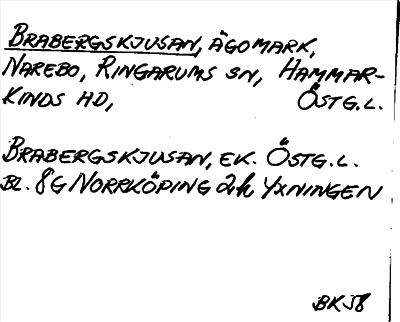 BRABERGSKJUSAN, ÄGOMARK,
NAREBO, RINGARUMS SN, HAMMAR-
KINDS HD, ÖSTG.L.
BRABERGSKJUSAN, EK. ÖSTG.L.
BL. 8G NORRKÖPING 2h YXNINGEN
BK58